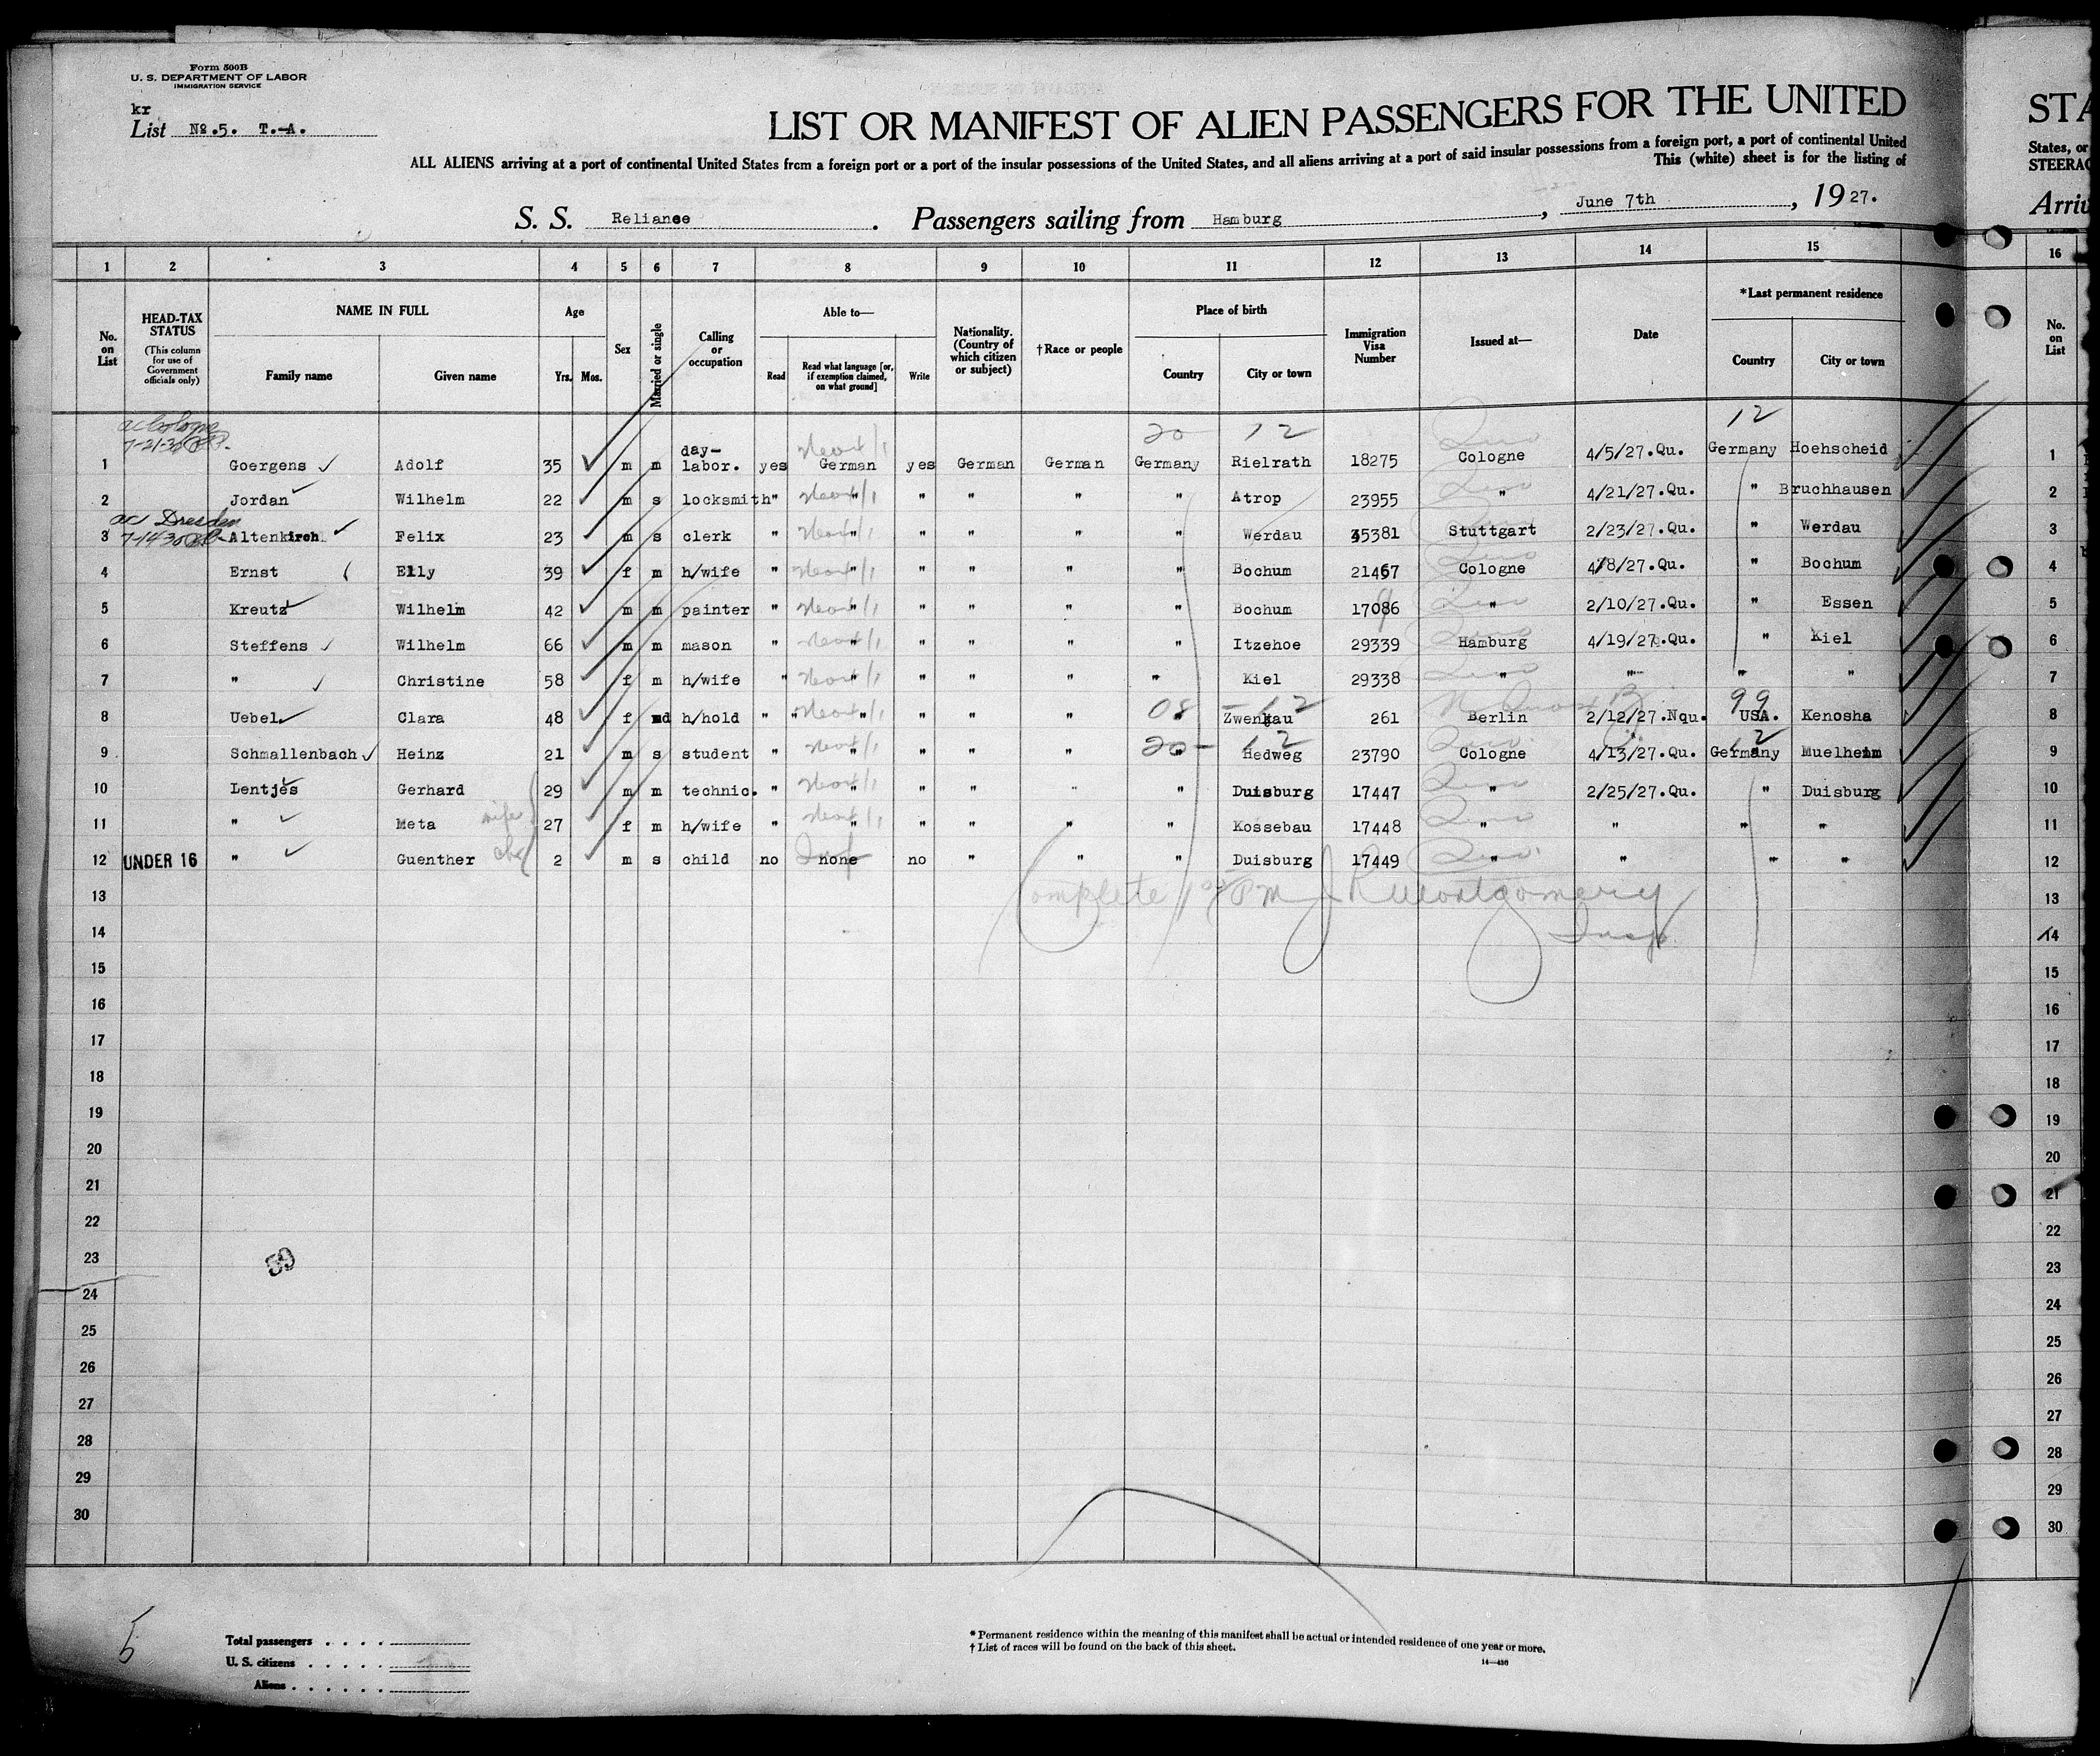 Form 500B
U. S. DEPARTMENT OF LABOR
IMMIGRATION SERVICE
kr
List No.5. T.-A.
LIST OR MANIFEST OF ALIEN PASSENGERS FOR THE UNITED
STA
ALL ALIENS arriving at a port of continental United States from a foreign port or a port of the insular possessions of the United States, and all aliens arriving at a port of said insular possessions from a foreign port, a port of continental United
States, or
This (white) sheet is for the listing of
STEERAG
S. S. Reliance. Passengers sailing from Hamburg, June 7th, 1927.
Arriv
1 2 3 4 5 6 7 8 9 10 11 12 13 14 15 16
No. on List
HEAD-TAX STATUS
(This column for use of Government officials only)
NAME IN FULL
Family name Given name
Age
Yrs. Mos.
Sex
Married or single
Calling or occupation
Able to—
Read
Read what language [or, if exemption claimed, on what ground]
Write
Nationality. (Country of which citizen or subject)
†Race or people
Place of birth
Country City or town
Immigration Visa Number
Issued at—
Date
*Last permanent residence
Country City or town
No. on List
20 12 12
7-21-30
1 Goergens Adolf 35 m m day-labor. yes German yes German German Germany Rielrath 18275 Cologne 4/5/27.Qu. Germany Hoehscheid 1
2 Jordan Wilhelm 22 m s locksmith " " " " " " Atrop 23955 " 4/21/27.Qu. " Bruchhausen 2
ac Dresden
7-14-30
3 Altenkirch Felix 23 m s clerk " " " " " " Werdau 35381 Stuttgart 2/23/27.Qu. " Werdau 3
4 Ernst Elly 39 f m h/wife " " " " " " Bochum 21467 Cologne 4/8/27.Qu. " Bochum 4
5 Kreutz Wilhelm 42 m m painter " " " " " " Bochum 17086 " 2/10/27.Qu. " Essen 5
6 Steffens Wilhelm 66 m m mason " " " " " " Itzehoe 29339 Hamburg 4/19/27.Qu. " Kiel 6
7 " Christine 58 f m h/wife " " " " " " Kiel 29338 " " " " 7
08 - 12 99
8 Uebel Clara 48 f md h/hold " " " " " " " Zwenkau 261 Berlin 2/12/27.Nqu. USA. Kenosha 8
20 - 12 12
9 Schmallenbach Heinz 21 m s student " " " " " " Hedweg 23790 Cologne 4/13/27.Qu. Germany Muelheim 9
10 Lentjes Gerhard 29 m m technic. " " " " " " Duisburg 17447 " 2/25/27.Qu. " Duisburg 10
11 " Meta wife 27 f m h/wife " " " " " " Kossebau 17448 " " " " 11
12 UNDER 16 " Guenther 2 m s child no none no " " " Duisburg 17449 " " " " 12
Complete PM J R Montgomery
Insp
13 13
14 14
15 15
16 16
17 17
18 18
19 19
20 20
21 21
22 22
23 59 23
24 24
25 25
26 26
27 27
28 28
29 29
30 30
5
Total passengers . . . .
U. S. citizens . . . . .
Aliens . . . . . .
* Permanent residence within the meaning of this manifest shall be actual or intended residence of one year or more.
† List of races will be found on the back of this sheet.
14—430